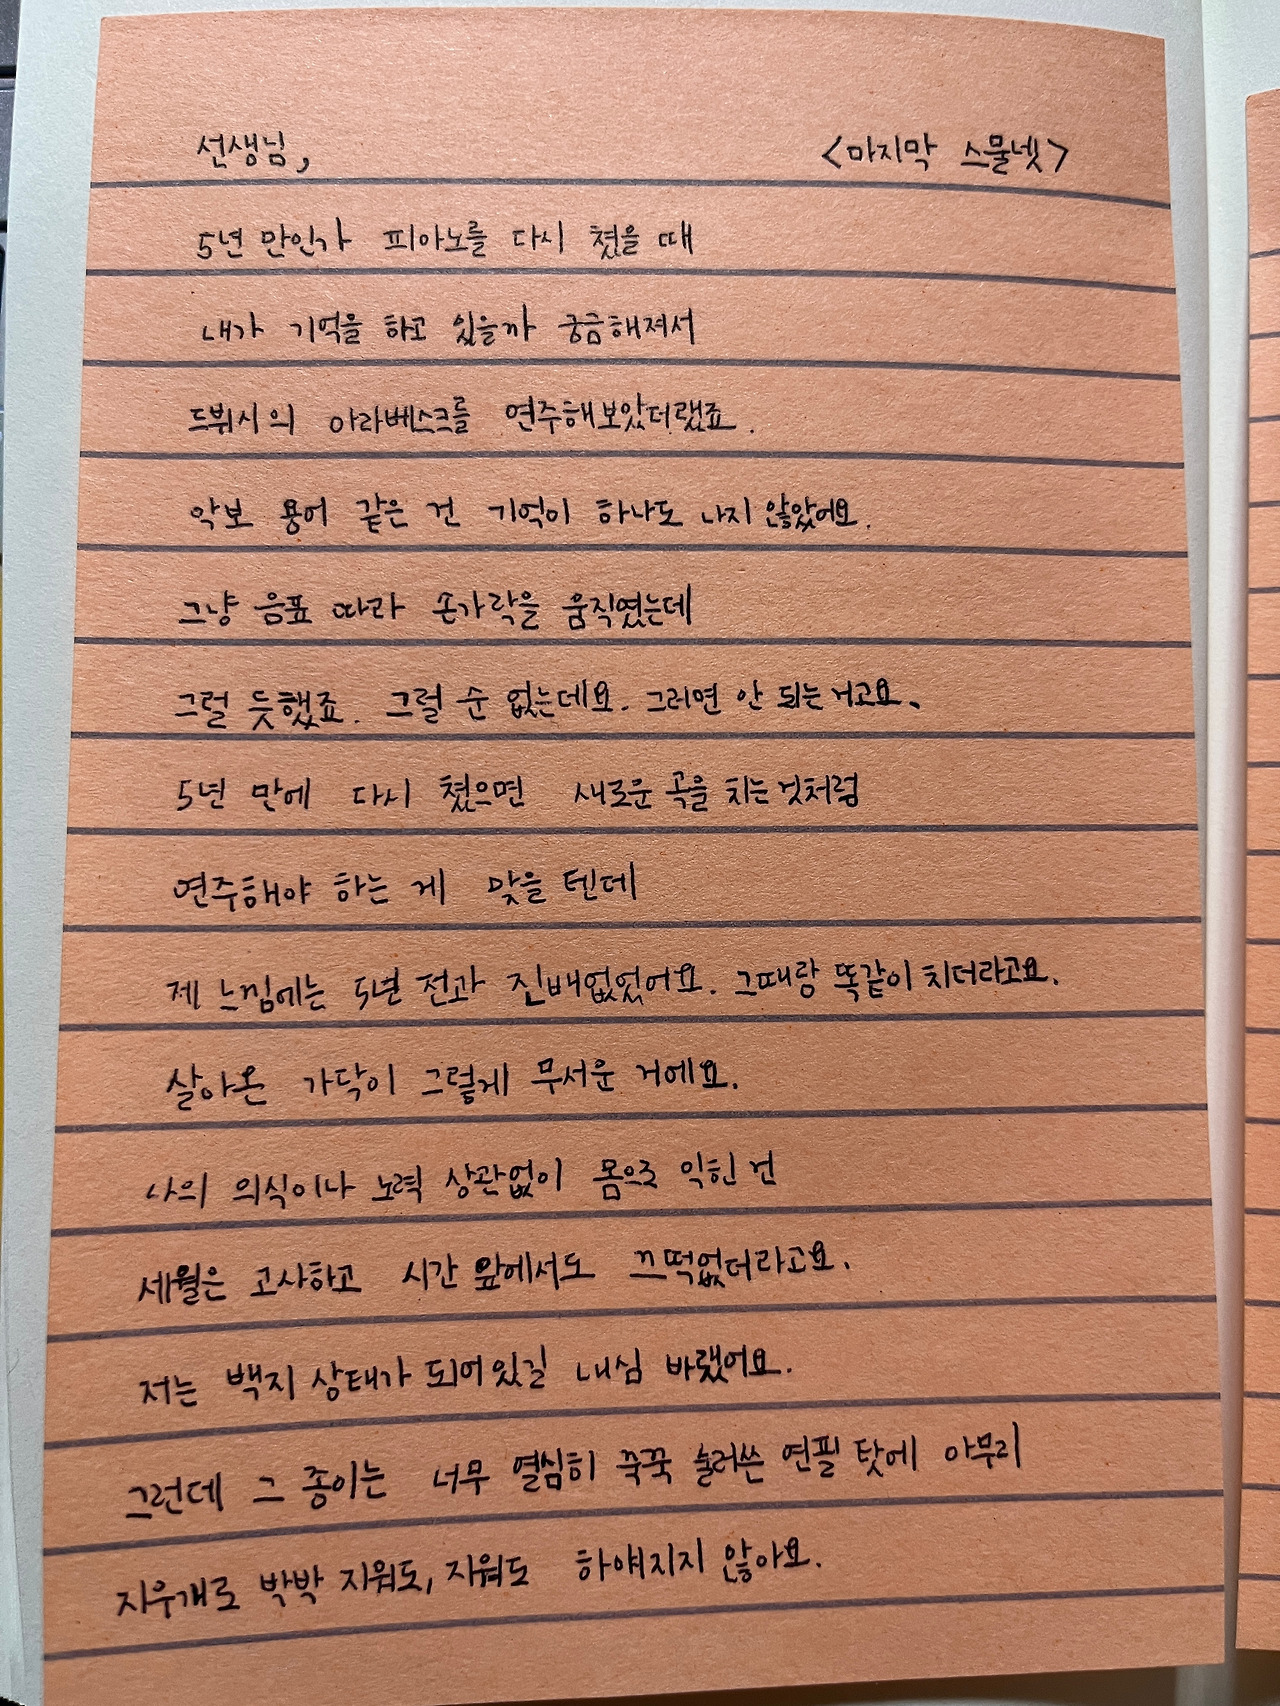 선생님,
<마지막 스물넷>
5년 만인가 피아노를 다시 쳤을 때
내가 기억을 하고 있을까 궁금해져서
드뷔시의 아라베스크를 연주해보았더랬죠.
악보 용어 같은 건 기억이 하나도 나지 않았어요.
그냥 음표 따라 손가락을 움직였는데
그럴 듯했죠. 그럴 순 없는데요. 그러면 안 되는 거고요.
5년 만에 다시 쳤으면 새로운 곡을 치는 것처럼
연주해야 하는 게 맞을 텐데
제 느낌에는 5년 전과 진배없었어요. 그때랑 똑같이 치더라고요.
살아온 가닥이 그렇게 무서운 거에요.
나의 의식이나 노력 상관없이 몸으로 익힌 건
세월은 고사하고 시간 앞에서도 끄떡없더라고요.
저는 백지 상태가 되어있길 내심 바랬어요.
그런데 그 종이는 너무 열심히 꾹꾹 눌러쓴 연필 탓에 아무리
지우개로 박박 지워도, 지워도 하얘지지 않아요.